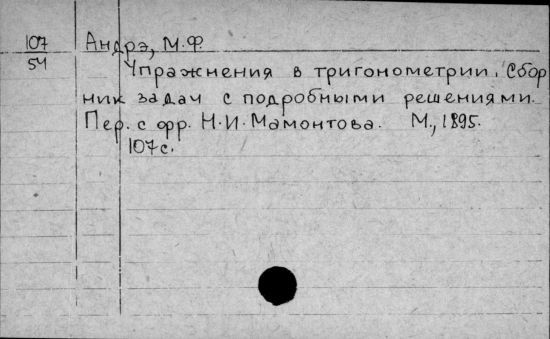 107
54
Андрэ, М.Ф.
Упражнения в тригонометрии. Сбор
ник задач с подробными решениями.
Пер. с фр. Н.И. Мамонтова. М., 1895.
107с.